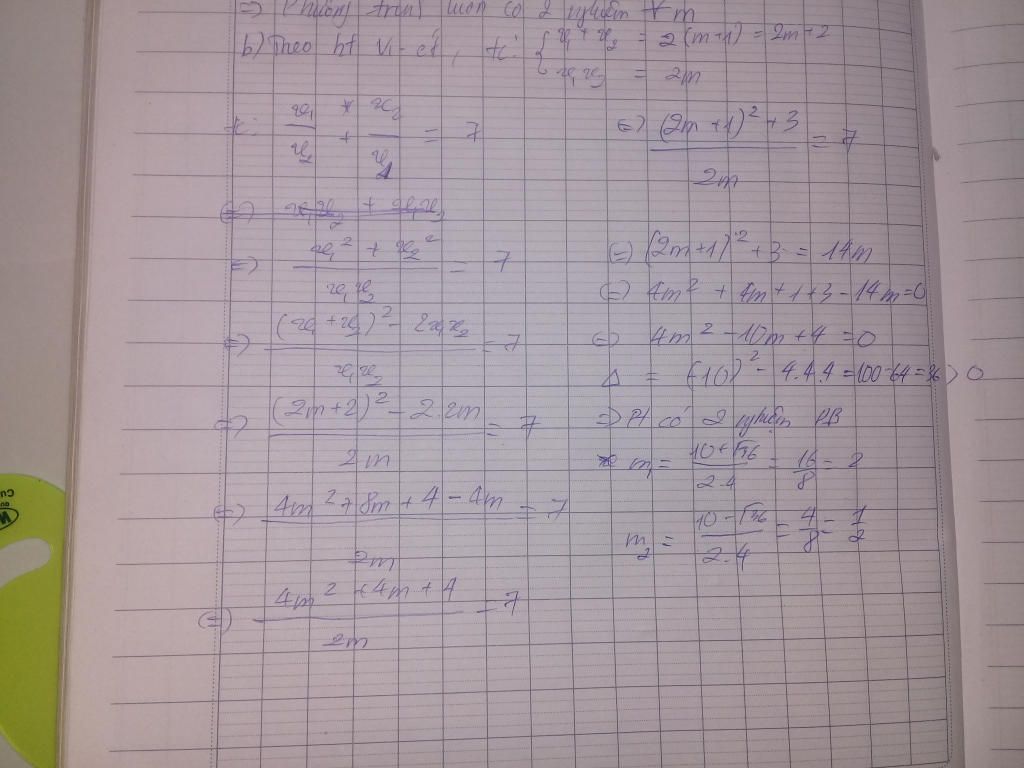 => Phương trình luôn có 2 nghiệm ∀m
b) Theo ht Vi-ét, tc: { x₁ + x₂ = 2(m+1) = 2m+2
x₁x₂ = 2m
tc: x₁/x₂ + x₂/x₁ = 7
<=> x₁x₂ + x₁x₂
<=> (x₁² + x₂²)/(x₁x₂) = 7
<=> ((x₁ + x₂)² - 2x₁x₂)/(x₁x₂) = 7
<=> ((2m+2)² - 2.2m)/(2m) = 7
<=> (4m² + 8m + 4 - 4m)/(2m) = 7
<=> (4m² + 4m + 4)/(2m) = 7
<=> ((2m+1)² + 3)/(2m) = 7
<=> (2m+1)² + 3 = 14m
<=> 4m² + 4m + 1 + 3 - 14m = 0
<=> 4m² - 10m + 4 = 0
Δ = (-10)² - 4.4.4 = 100-64 = 36 > 0
=> Pt có 2 nghiệm PB
m₁ = (10+√36)/(2.4) = 16/8 = 2
m₂ = (10-√36)/(2.4) = 4/8 = 1/2